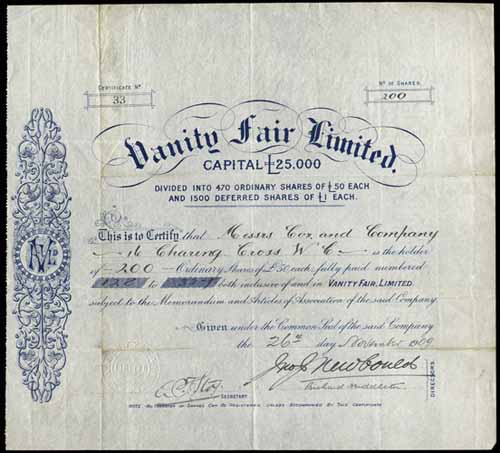 CERTIFICATE Nº
33
Nº OF SHARES.
200
Vanity Fair Limited.
CAPITAL £25,000
DIVIDED INTO 470 ORDINARY SHARES OF £50 EACH
AND 1500 DEFERRED SHARES OF £1 EACH.
This is to Certify that Messrs Cox and Company
16 Charing Cross W.C. is the holder
of 200 Ordinary Shares of £50 each, fully paid numbered
to both inclusive of and in VANITY FAIR, LIMITED
subject to the Memorandum and Articles of Association of the said Company.
Given under the Common Seal of the said Company
the 26th day November 1909
SECRETARY
DIRECTORS
NOTE: No TRANSFER OF SHARES CAN BE REGISTERED UNLESS ACCOMPANIED BY THIS CERTIFICATE